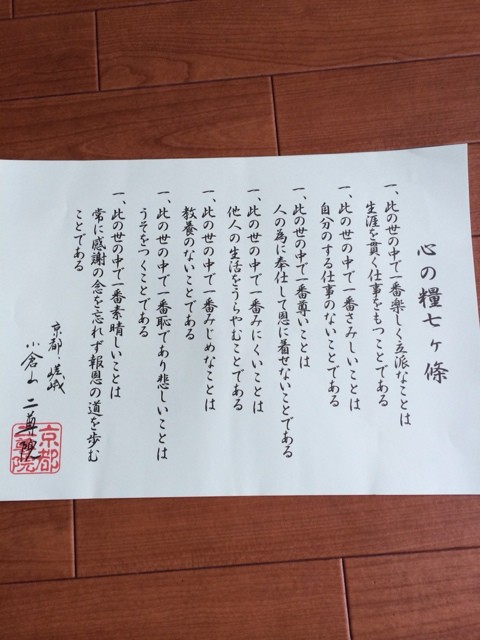 心の糧七ヶ條
一、此の世の中で一番楽しく立派なことは
生涯を貫く仕事をもつことである
一、此の世の中で一番さみしいことは
自分のする仕事のないことである
一、此の世の中で一番尊いことは
人の為に奉仕して恩に着せないことである
一、此の世の中で一番みにくいことは
他人の生活をうらやむことである
一、此の世の中で一番みじめなことは
教養のないことである
一、此の世の中で一番恥であり悲しいことは
うそをつくことである
一、此の世の中で一番素晴しいことは
常に感謝の念を忘れず報恩の道を歩む
ことである
京都・嵯峨
小倉山 二尊院
京都
二尊院